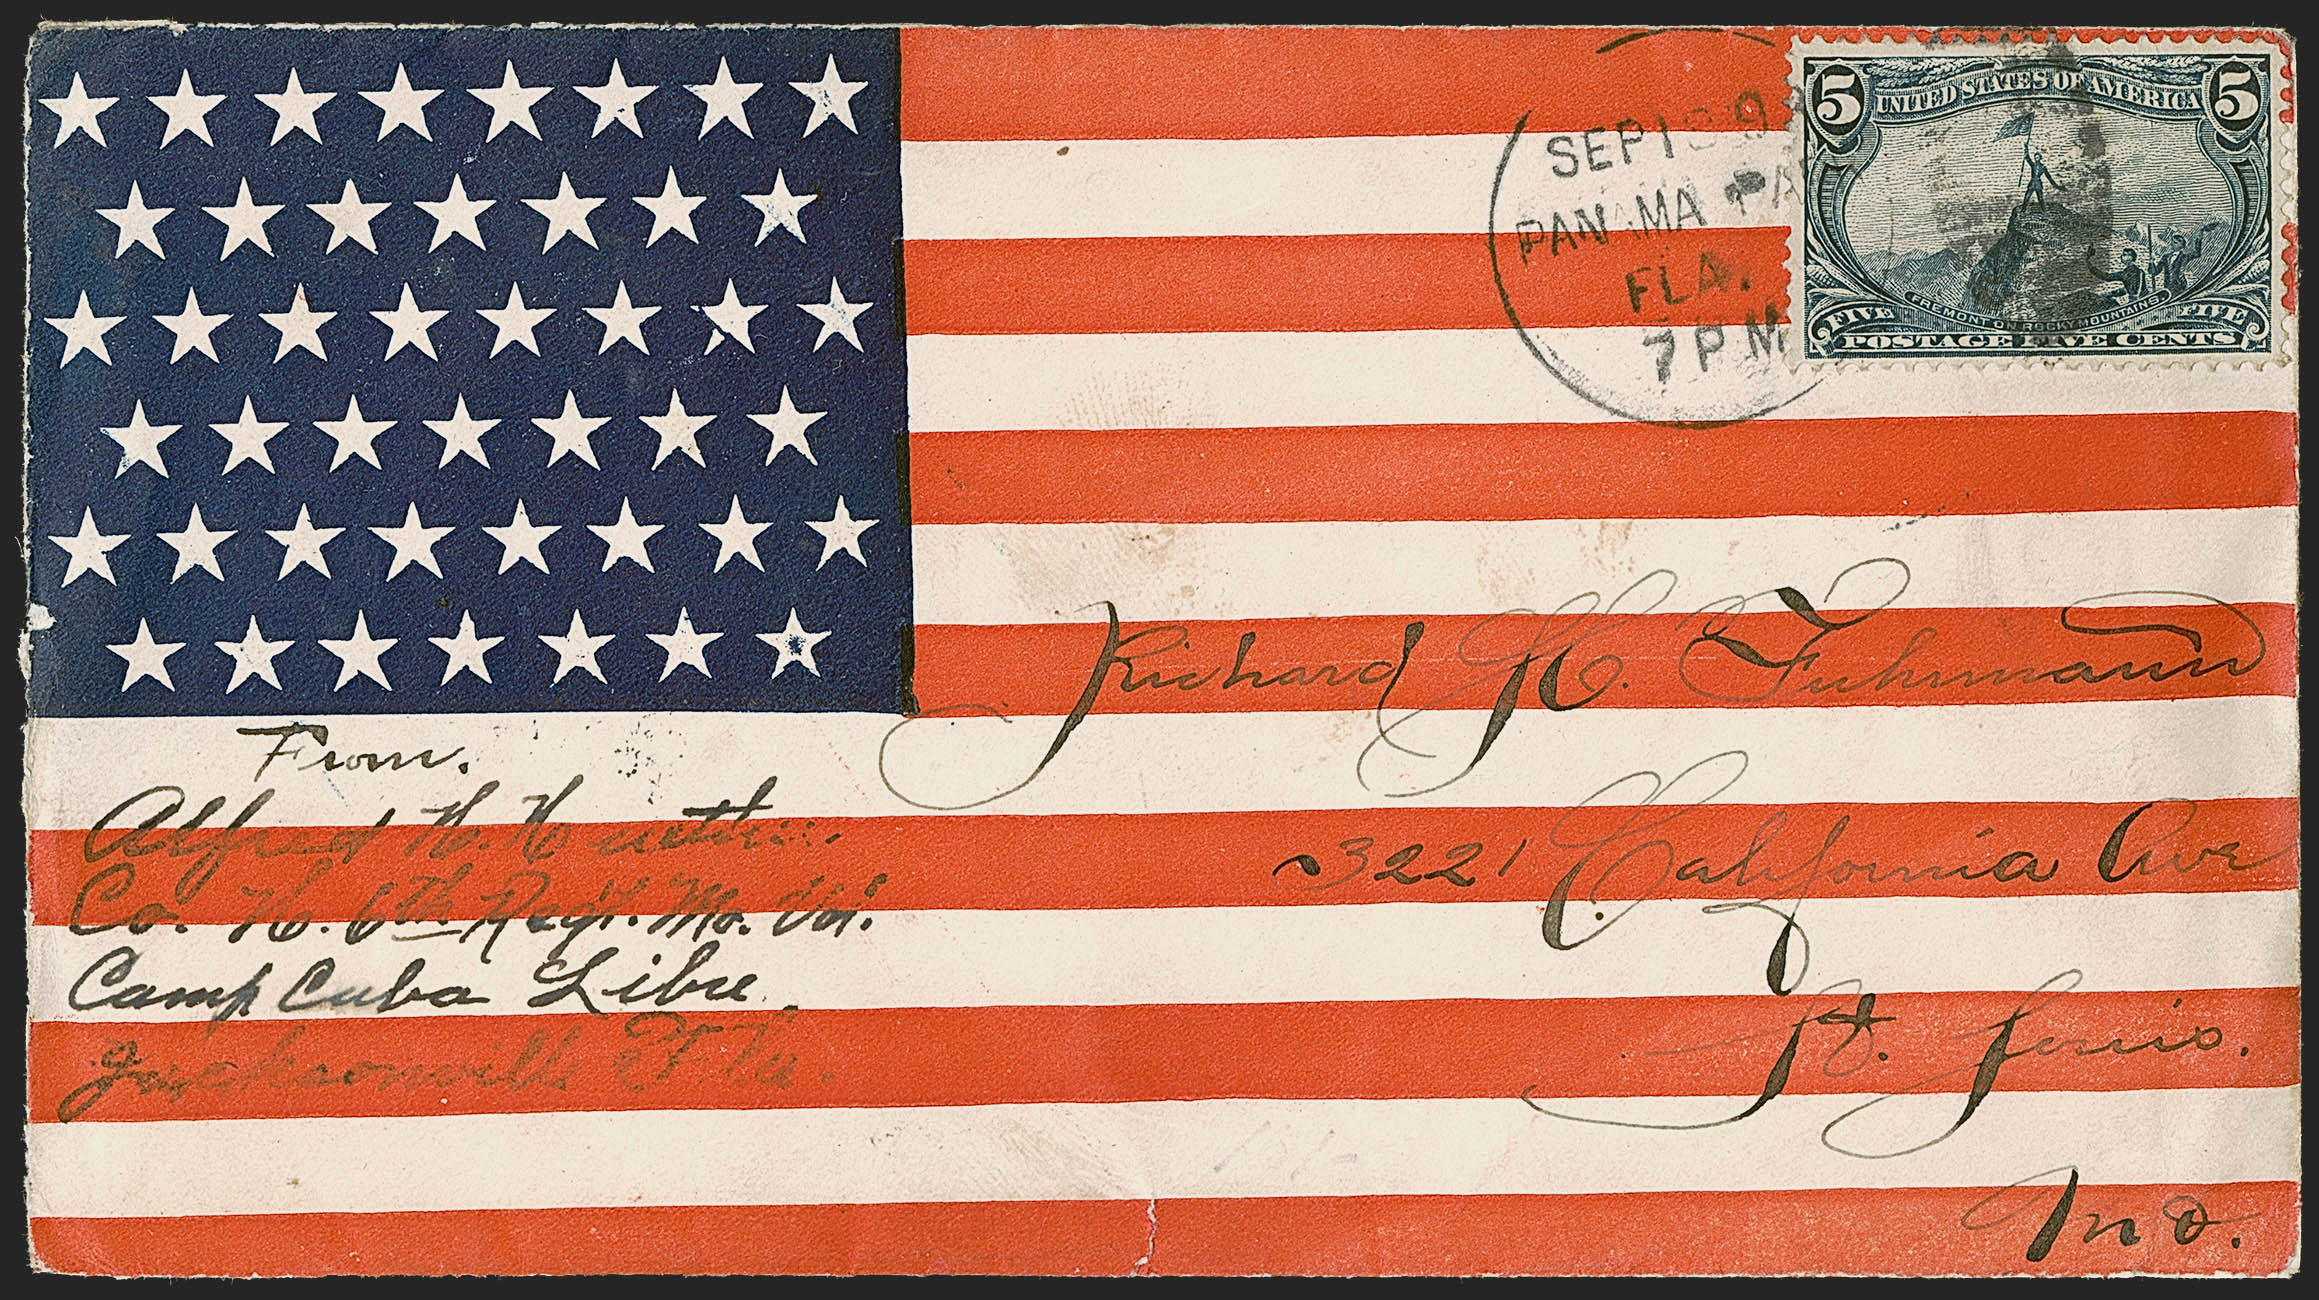 SEP 1
PANAMA PA
FLA.
7 PM
5 5
UNITED STATES OF AMERICA
FREMONT ON ROCKY MOUNTAINS.
FIVE FIVE
POSTAGE FIVE CENTS
Richard H. Fuhrmann
3221 California Ave
St. Louis.
Mo.
From.
Alfred H.
Co. H. 6th Regt. Mo. Vol.
Camp Cuba Libre
Jacksonville Fla.